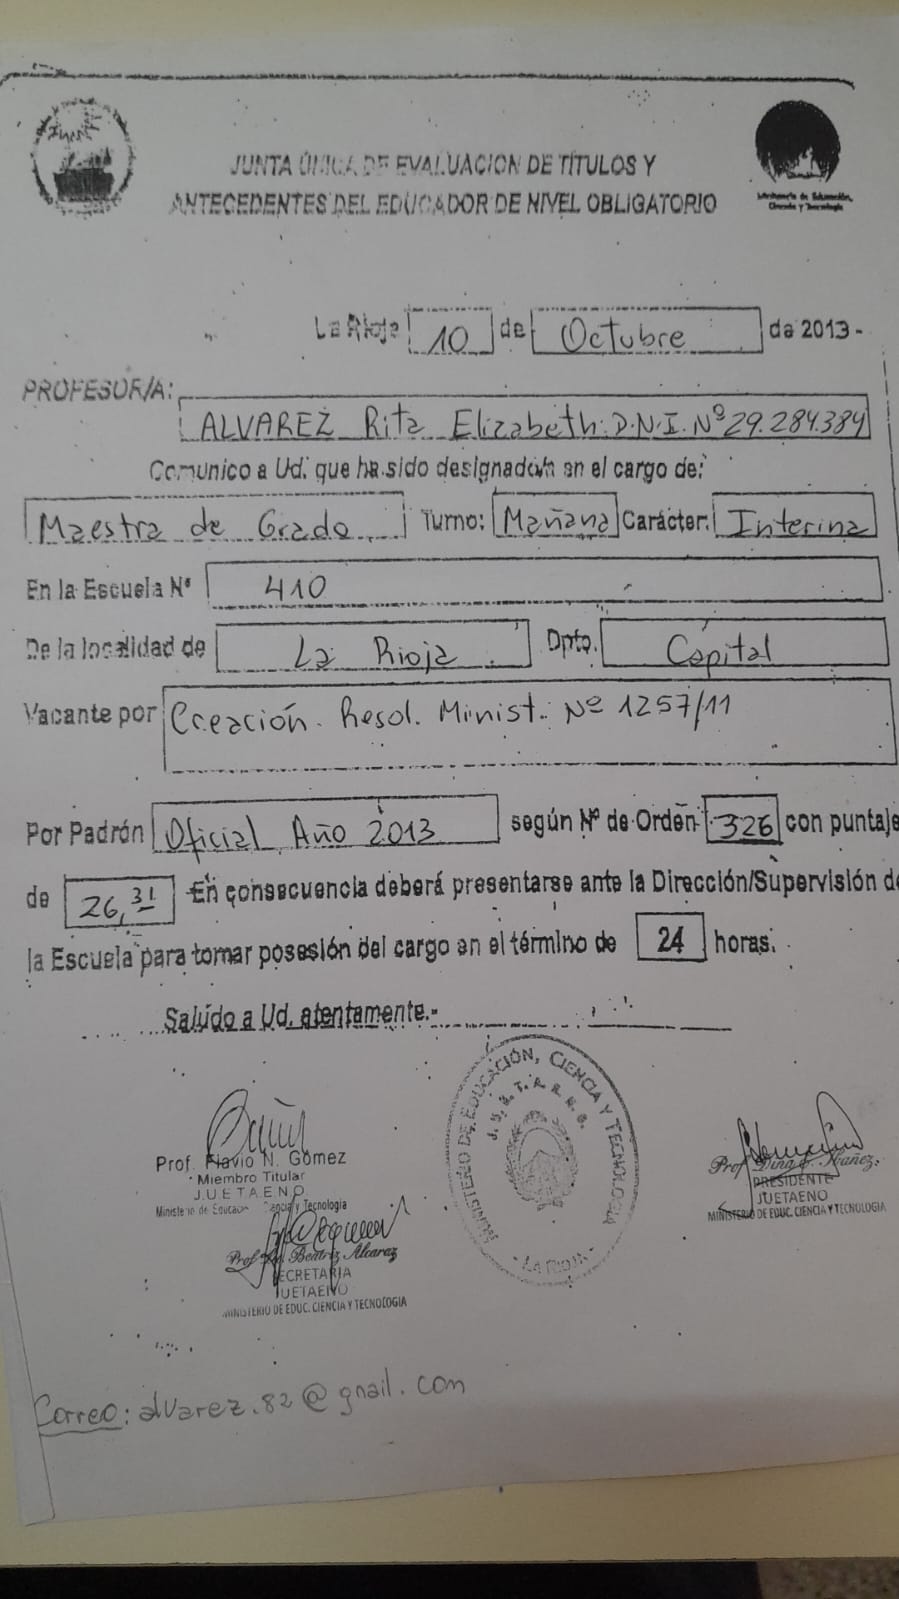 JUNTA ÚNICA DE EVALUACION DE TÍTULOS Y
ANTECEDENTES DEL EDUCADOR DE NIVEL OBLIGATORIO
Ministerio de Educación,
Ciencia y Tecnología
La Rioja 10 de Octubre de 2013-
PROFESOR/A:
ALVAREZ Rita Elizabeth. D.N.I. Nº 29.284.384
Comunico a Ud. que ha sido designado/a en el cargo de:
Maestra de Grado Turno: Mañana Carácter: Interina
En la Escuela Nº 410
De la localidad de La Rioja Dpto. Capital
Vacante por Creación. Resol. Minist. Nº 1257/11
Por Padrón Oficial Año 2013 según Nº de Orden 326 con puntaje
de 26,31 En consecuencia deberá presentarse ante la Dirección/Supervisión de
la Escuela para tomar posesión del cargo en el término de 24 horas.
Saludo a Ud. atentamente.-
MINISTERIO DE EDUCACIÓN, CIENCIA Y TECNOLOGIA
J. U. E. T. A. E. N. O.
- LA RIOJA -
Prof. Flavio N. Gómez
Miembro Titular
J.U.E.T.A.E.N.O
Ministerio de Educación Ciencia y Tecnologia
Ibañez
PRESIDENTE
JUETAENO
MINISTERIO DE EDUC. CIENCIA Y TECNOLOGIA
Beatriz Alcaraz
SECRETARIA
JUETAENO
MINISTERIO DE EDUC. CIENCIA Y TECNOLOGIA
Correo: alvarez.82@gnail.com